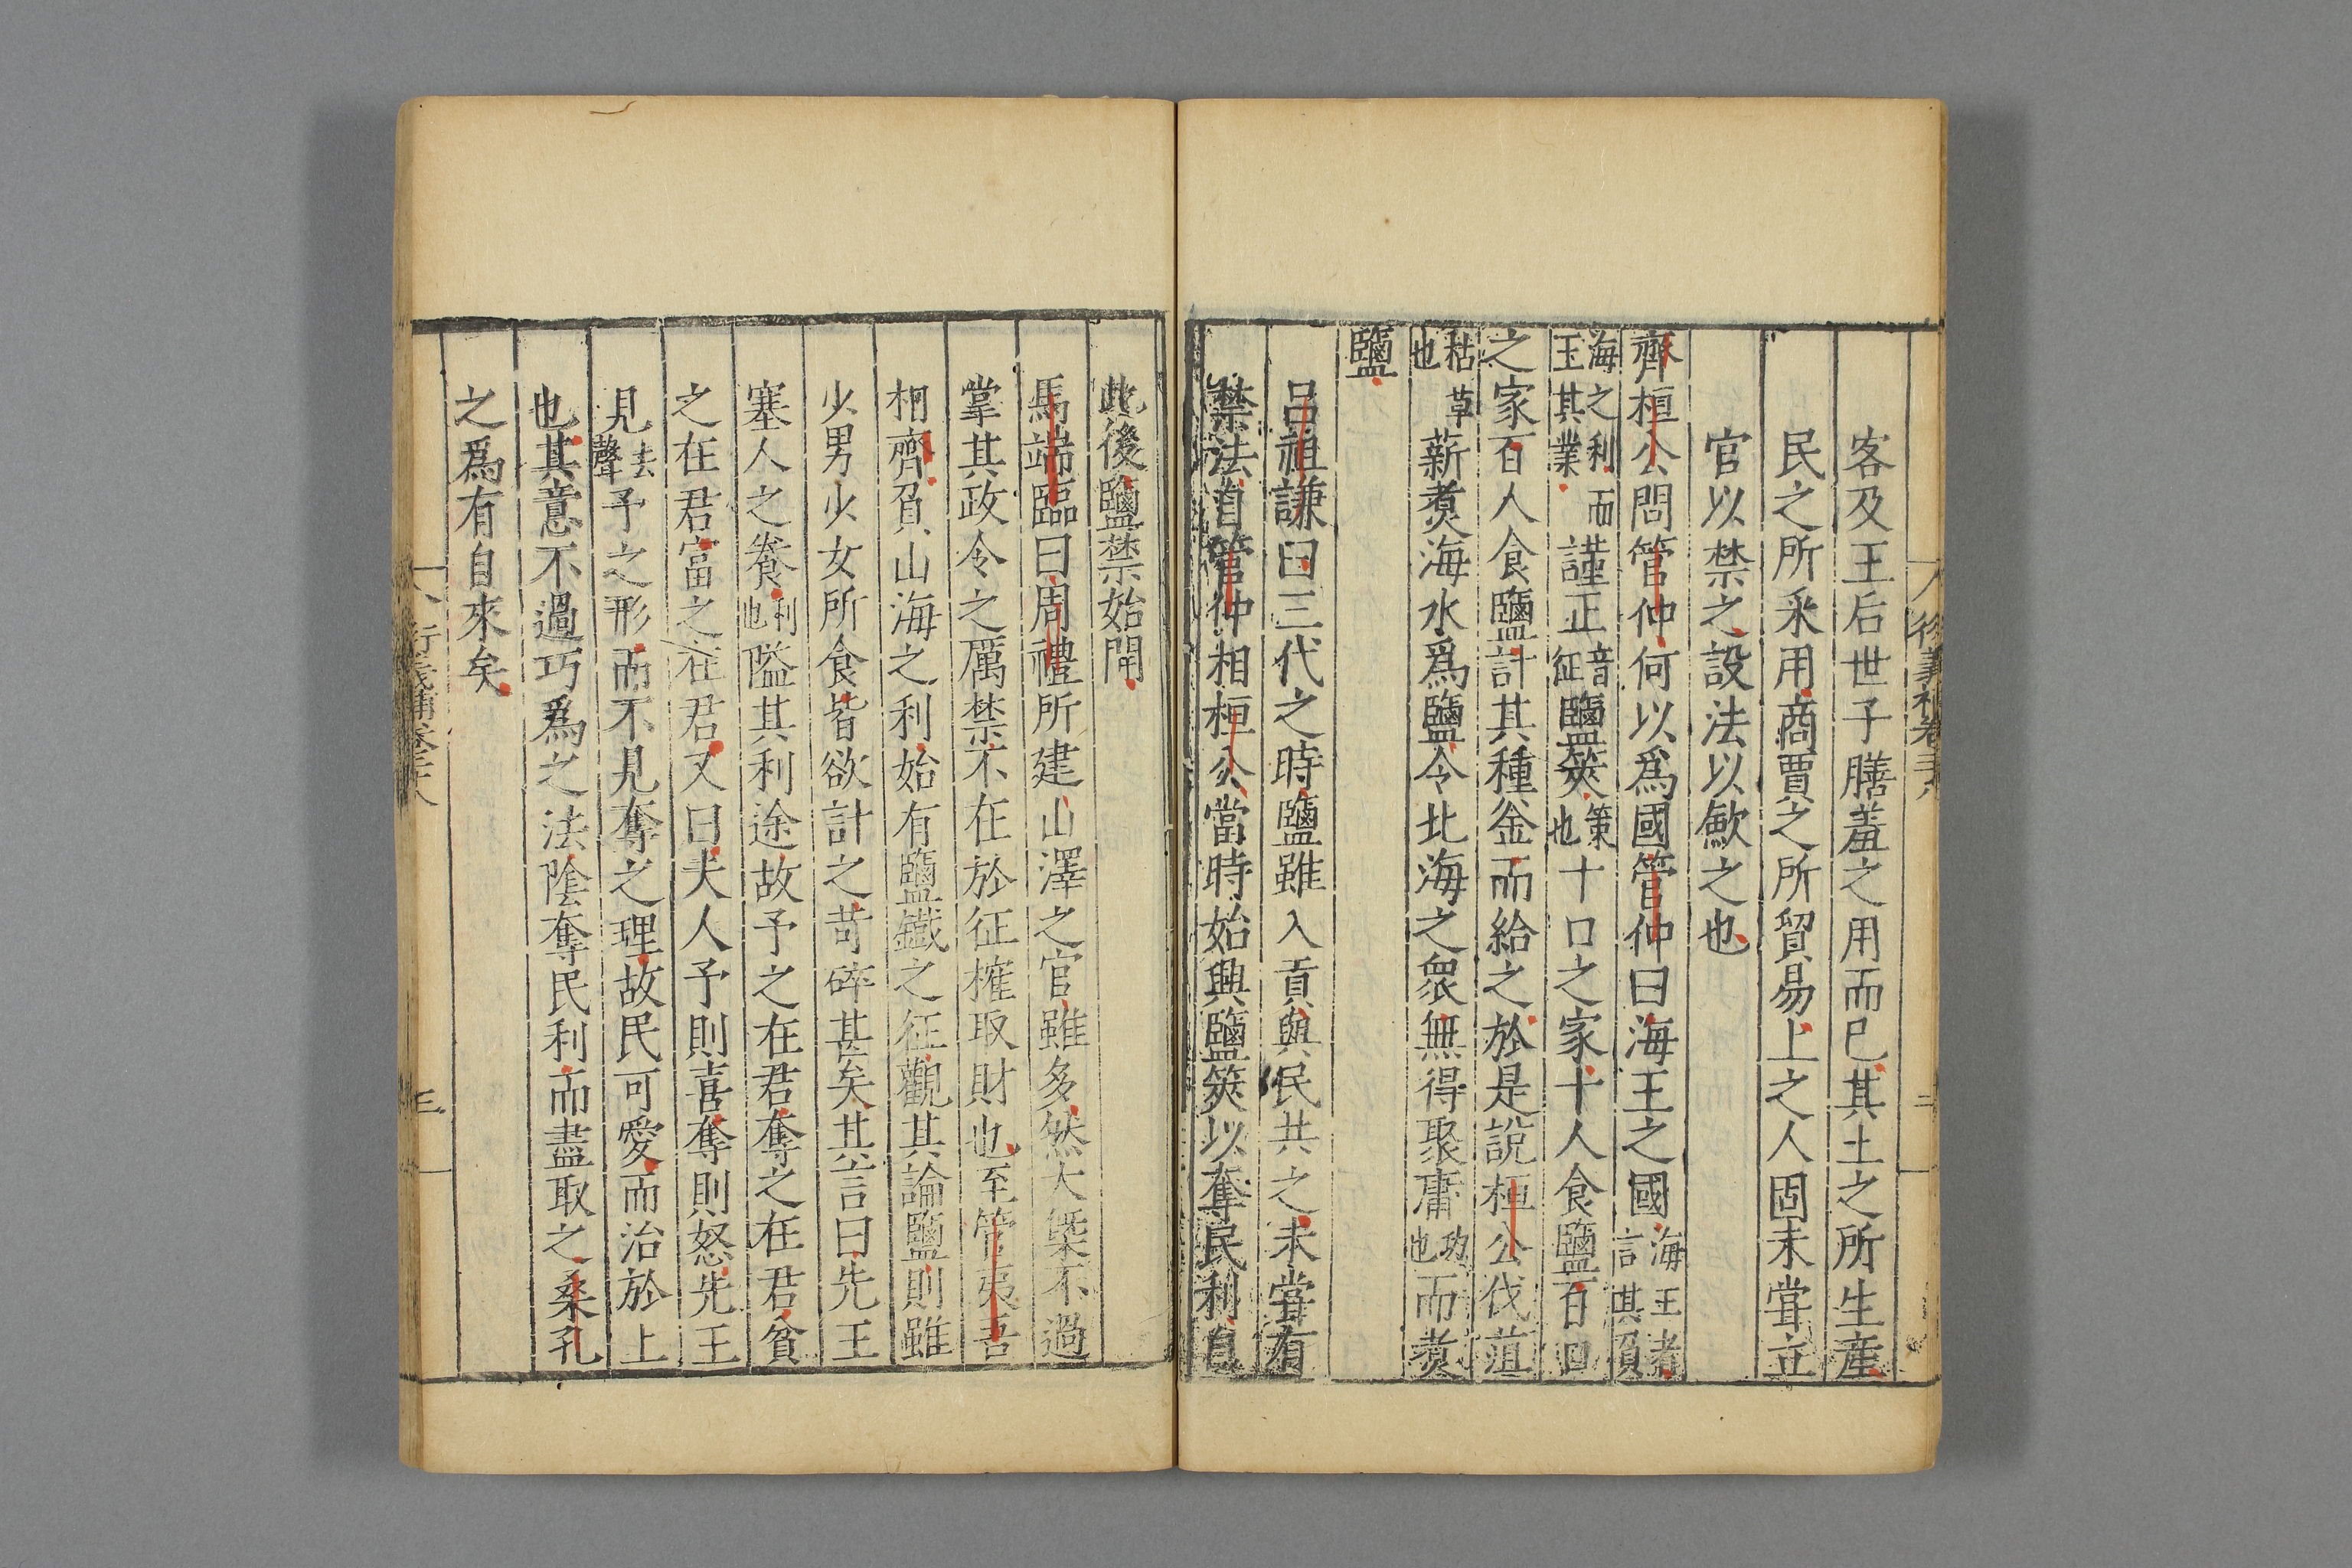 客及王后世子膳羞之用而已其土之所生産
民之所采用商賈之所貿易上之人固未嘗立
官以禁之設法以歛之也
齊桓公問管仲何以爲國管仲曰海王之國海王者言其負
海之利而王其業謹正音征鹽筴策也十口之家十人食鹽百口
之家百人食鹽計其種釜而給之於是說桓公伐菹
枯草也薪煑海水爲鹽令北海之衆無得聚庸功也而煑
鹽
呂祖謙曰三代之時鹽雖入貢與民共之未嘗有
禁法自管仲相桓公當時始興鹽筴以奪民利自
此後鹽禁始開
馬端臨曰周禮所建山澤之官雖多然大槩不過
掌其政令之厲禁不在於征榷取財也至管夷吾
相齊負山海之利始有鹽鐵之征觀其論鹽則雖
少男少女所食皆欲計之苛碎甚矣其言曰先王
塞人之養利也隘其利途故予之在君奪之在君貧
之在君富之在君又曰夫人予則喜奪則怒先王
見去聲予之形而不見奪之理故民可愛而治於上
也其意不過巧爲之法陰奪民利而盡取之桑孔
之爲有自來矣
三